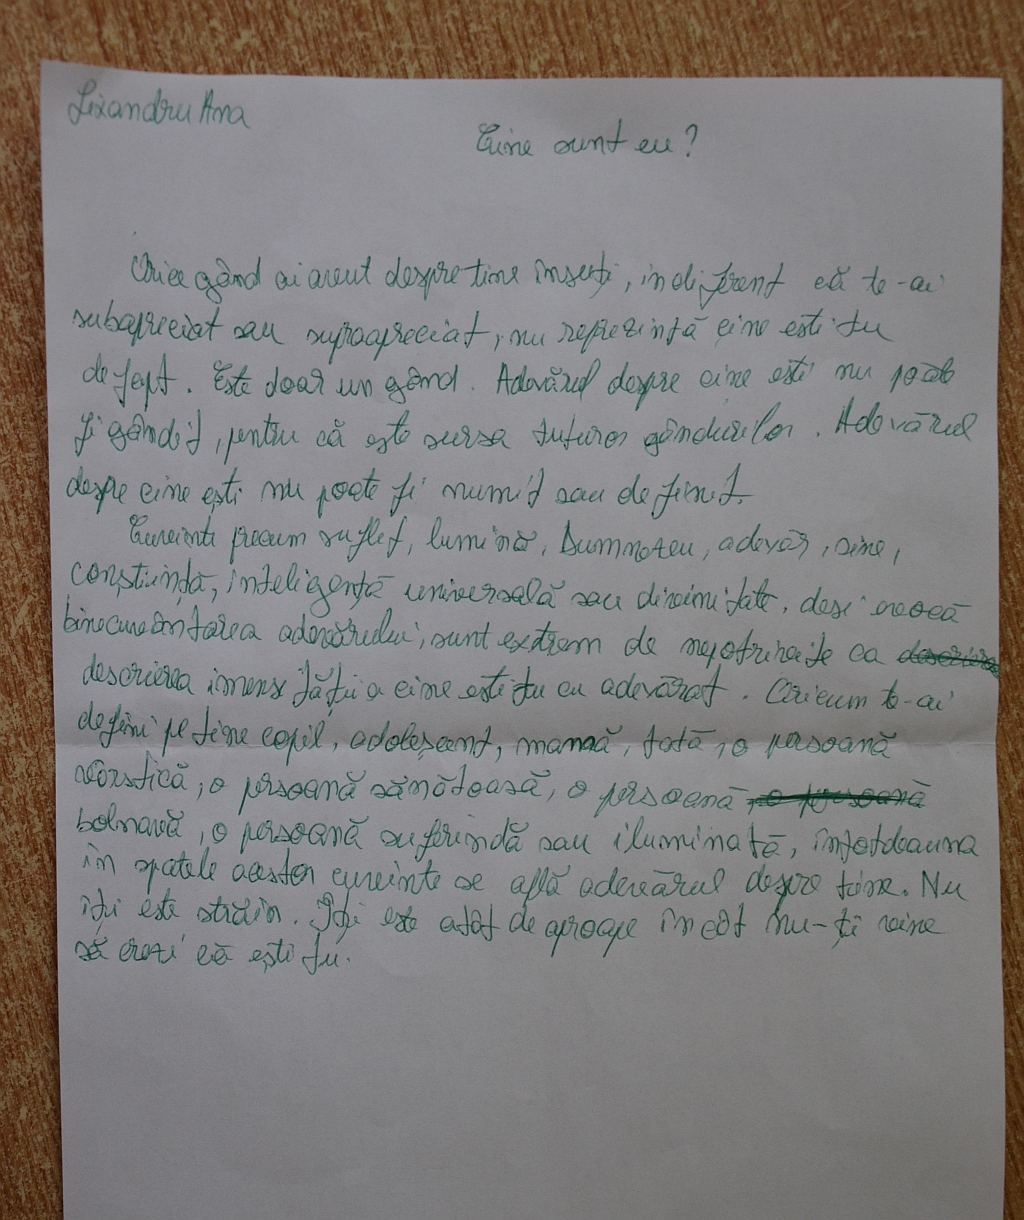 Lixandru Ana
Cine sunt eu?
Orice gând ai avut despre tine însuți, indiferent că te-ai
subapreciat sau supraapreciat, nu reprezintă cine ești tu
de fapt. Este doar un gând. Adevărul despre cine ești nu poate
fi gândit, pentru că este sursa tuturor gândurilor. Adevărul
despre cine ești nu poate fi numit sau definit.
Cuvinte precum suflet, lumină, Dumnezeu, adevăr, sine,
conștiință, inteligență universală sau divinitate, deși evocă
binecuvântarea adevărului, sunt extrem de nepotrivite ca descrierea
descrierea imensității a cine ești tu cu adevărat. Oricum te-ai
defini pe tine copil, adolescent, mamă, tată, o persoană
vârstică, o persoană sănătoasă, o persoană, o persoană
bolnavă, o persoană suferindă sau iluminată, întotdeauna
în spatele acestor cuvinte se află adevărul despre tine. Nu
îți este străin. Îți este atât de aproape încât nu-ți vine
să crezi că ești tu.